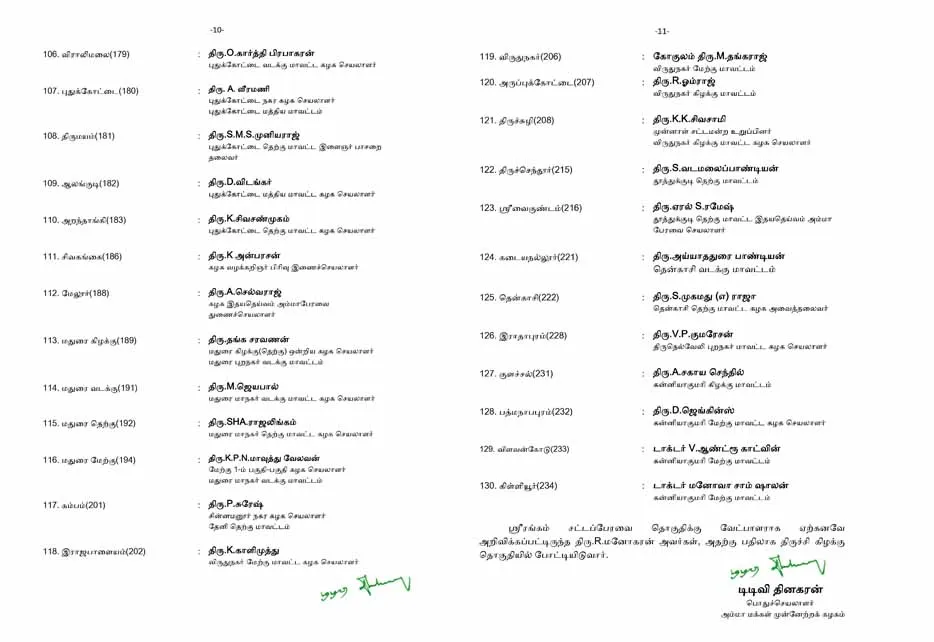 -10-
106. விராலிமலை(179) : திரு.O.கார்த்தி பிரபாகரன்
புதுக்கோட்டை வடக்கு மாவட்ட கழக செயலாளர்
107. புதுக்கோட்டை(180) : திரு. A. வீரமணி
புதுக்கோட்டை நகர கழக செயலாளர்
புதுக்கோட்டை மத்திய மாவட்டம்
108. திருமயம்(181) : திரு.S.M.S.முனியராஜ்
புதுக்கோட்டை தெற்கு மாவட்ட இளைஞர் பாசறை
தலைவர்
109. ஆலங்குடி(182) : திரு.D.விடங்கர்
புதுக்கோட்டை மத்திய மாவட்ட கழக செயலாளர்
110. அறந்தாங்கி(183) : திரு.K.சிவசண்முகம்
புதுக்கோட்டை தெற்கு மாவட்ட கழக செயலாளர்
111. சிவகங்கை(186) : திரு.K அன்பரசன்
கழக வழக்கறிஞர் பிரிவு இணைச்செயலாளர்
112. மேலூர்(188) : திரு.A.செல்வராஜ்
கழக இதயதெய்வம் அம்மாபேரவை
துணைச்செயலாளர்
113. மதுரை கிழக்கு(189) : திரு.தங்க சரவணன்
மதுரை கிழக்கு(தெற்கு) ஒன்றிய கழக செயலாளர்
மதுரை புறநகர் வடக்கு மாவட்டம்
114. மதுரை வடக்கு(191) : திரு.M.ஜெயபால்
மதுரை மாநகர் வடக்கு மாவட்ட கழக செயலாளர்
115. மதுரை தெற்கு(192) : திரு.SHA.ராஜலிங்கம்
மதுரை மாநகர் தெற்கு மாவட்ட கழக செயலாளர்
116. மதுரை மேற்கு(194) : திரு.K.P.N.மாவுத்து வேலவன்
மேற்கு 1-ம் பகுதி-பகுதி கழக செயலாளர்
மதுரை மாநகர் வடக்கு மாவட்டம்
117. கம்பம்(201) : திரு.P.சுரேஷ்
சின்னமனூர் நகர கழக செயலாளர்
தேனி தெற்கு மாவட்டம்
118. இராஜபாளையம்(202) : திரு.K.காளிமுத்து
விருதுநகர் மேற்கு மாவட்ட கழக செயலாளர்
-11-
119. விருதுநகர்(206) : கோகுலம் திரு.M.தங்கராஜ்
விருதுநகர் மேற்கு மாவட்டம்
120. அருப்புக்கோட்டை(207) : திரு.R.ஓம்ராஜ்
விருதுநகர் கிழக்கு மாவட்டம்
121. திருச்சுழி(208) : திரு.K.K.சிவசாமி
முன்னாள் சட்டமன்ற உறுப்பினர்
விருதுநகர் கிழக்கு மாவட்ட கழக செயலாளர்
122. திருச்செந்தூர்(215) : திரு.S.வடமலைப்பாண்டியன்
தூத்துக்குடி தெற்கு மாவட்டம்
123. ஸ்ரீவைகுண்டம்(216) : திரு.ஏரல் S.ரமேஷ்
தூத்துக்குடி தெற்கு மாவட்ட இதயதெய்வம் அம்மா
பேரவை செயலாளர்
124. கடையநல்லூர்(221) : திரு.அய்யாதுரை பாண்டியன்
தென்காசி வடக்கு மாவட்டம்
125. தென்காசி(222) : திரு.S.முகமது (எ) ராஜா
தென்காசி தெற்கு மாவட்ட கழக அவைத்தலைவர்
126. இராதாபுரம்(228) : திரு.V.P.குமரேசன்
திருநெல்வேலி புறநகர் மாவட்ட கழக செயலாளர்
127. குளச்சல்(231) : திரு.A.சகாய செந்தில்
கன்னியாகுமரி கிழக்கு மாவட்டம்
128. பத்மநாபபுரம்(232) : திரு.D.ஜெங்கின்ஸ்
கன்னியாகுமரி மேற்கு மாவட்ட கழக செயலாளர்
129. விளவன்கோடு(233) : டாக்டர் V.ஆண்ட்ரூ காட்வின்
கன்னியாகுமரி மேற்கு மாவட்டம்
130. கிள்ளியூர்(234) : டாக்டர் மனோவா சாம் ஷாலன்
கன்னியாகுமரி மேற்கு மாவட்டம்
ஸ்ரீரங்கம் சட்டப்பேரவை தொகுதிக்கு வேட்பாளராக ஏற்கனவே
அறிவிக்கப்பட்டிருந்த திரு.R.மனோகரன் அவர்கள், அதற்கு பதிலாக திருச்சி கிழக்கு
தொகுதியில் போட்டியிடுவார்.
டிடிவி தினகரன்
பொதுச்செயலாளர்
அம்மா மக்கள் முன்னேற்றக் கழகம்